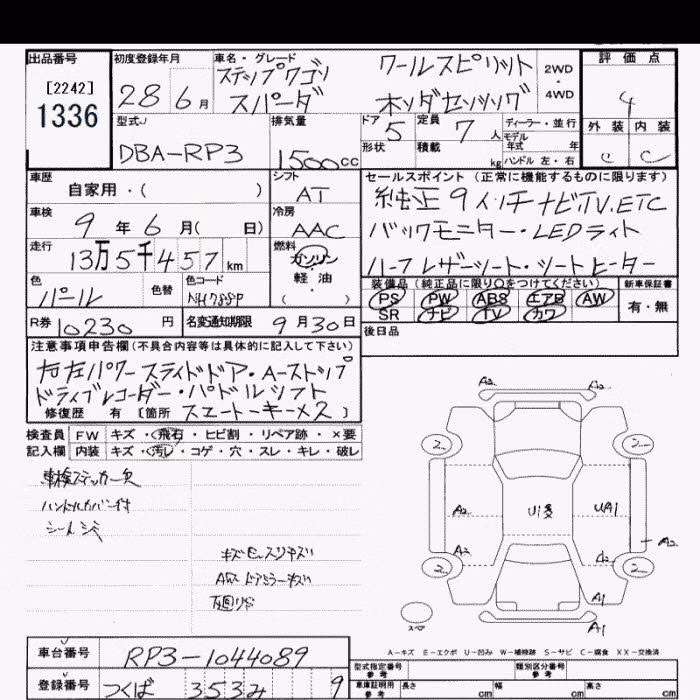 出品番号
[2242]
1336
初度登録年月
28 6月
車名・グレード
ステップワゴン ワールスピリット
スパーダ ホンダセンシング
2WD
・
4WD
評価点
4
外装 内装
C C
型式
DBA-RP3
排気量
1500cc
ドア 5
定員 7人
形状
積載 kg
ディーラー・並行
モデル
年式 年
ハンドル 左・右
車歴
自家用・( )
シフト
AT
車検
9年6月( 日)
冷房
AAC
走行
13万5千457km
燃料
ガソリン
・
軽油
( ・ )
色
パール
色替
色コード
NH788P
R券 10230円
名変通知期限 9月30日
セールスポイント(正常に機能するものに限ります)
純正9インチナビTV.ETC
バックモニター・LEDライト
ハーフレザーシート・シートヒーター
装備品(純正品に限り○をつけてください) 新車保証書
PS PW ABS エアB AW
SR ナビ TV カワ
有・無
後日品
注意事項申告欄(不具合内容等は具体的に記入して下さい)
右左パワースライドドア・Aーストップ
ドライブレコーダー・パドルシフト
修復歴 有 [箇所 スマートーキーメ2]
検査員 FW キズ・飛石・ヒビ割・リペア跡・×要
記入欄 内装 キズ・汚レ・コゲ・穴・スレ・キレ・破レ
車検ステッカー欠
ハンドルカバー付
シートシミ
キズ・エ・スリキズい
AW ドアミラーキズい
下廻りサ
A2 A2
2 2
A2 U1多 UA1
A2 A2 A2
2 2
A1
スペア A1
A-キズ E-エクボ U-凹み W-補修跡 S-サビ C-腐食 XX-交換済
車台番号
RP3-1044089
登録番号
つくば 353み 9
型式指定番号
参考
類別区分番号
参考
車庫証明用
参考
長さ cm 幅 cm 高さ cm